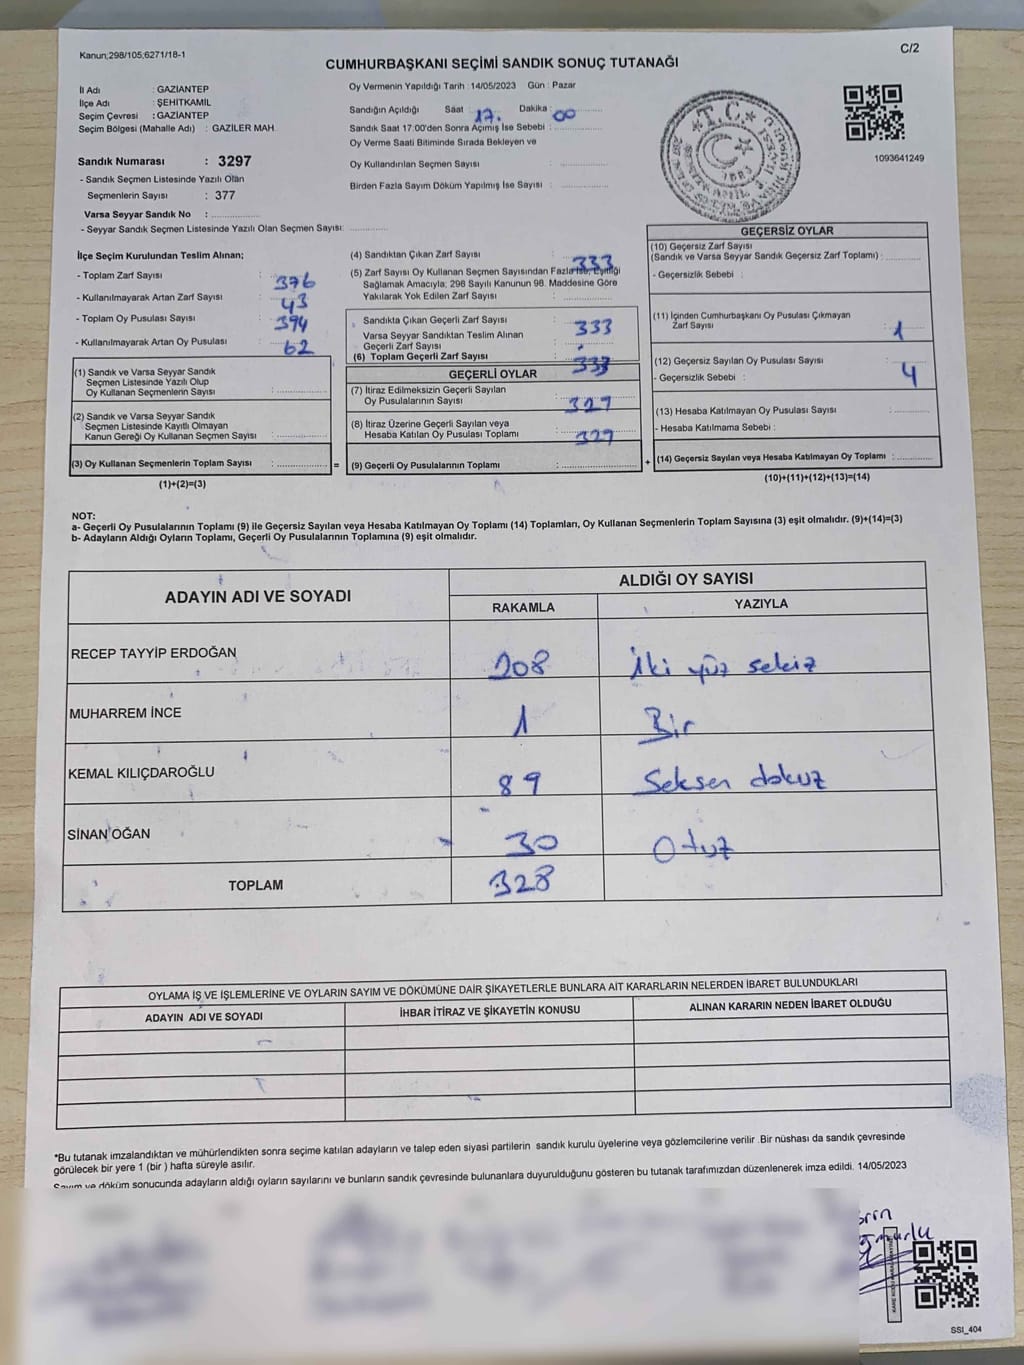 Kanun;298/105;6271/18-1
C/2
CUMHURBAŞKANI SEÇİMİ SANDIK SONUÇ TUTANAĞI
İl Adı : GAZİANTEP
İlçe Adı : ŞEHİTKAMİL
Seçim Çevresi : GAZİANTEP
Seçim Bölgesi (Mahalle Adı) : GAZİLER MAH.
Sandık Numarası : 3297
- Sandık Seçmen Listesinde Yazılı Olan
Seçmenlerin Sayısı : 377
Varsa Seyyar Sandık No : ..............
- Seyyar Sandık Seçmen Listesinde Yazılı Olan Seçmen Sayısı: ............
Oy Vermenin Yapıldığı Tarih : 14/05/2023 Gün : Pazar
Sandığın Açıldığı Saat : 17. Dakika : 00
Sandık Saat 17:00'den Sonra Açımış İse Sebebi : ..............
Oy Verme Saati Bitiminde Sırada Bekleyen ve
Oy Kullandırılan Seçmen Sayısı : ..............
Birden Fazla Sayım Döküm Yapılmış İse Sayısı : ..............
T.C.
1093641249
İlçe Seçim Kurulundan Teslim Alınan;
- Toplam Zarf Sayısı : 376
- Kullanılmayarak Artan Zarf Sayısı : 43
- Toplam Oy Pusulası Sayısı : 394
- Kullanılmayarak Artan Oy Pusulası : 62
(1) Sandık ve Varsa Seyyar Sandık
Seçmen Listesinde Yazılı Olup
Oy Kullanan Seçmenlerin Sayısı : ..............
(2) Sandık ve Varsa Seyyar Sandık
Seçmen Listesinde Kayıtlı Olmayan
Kanun Gereği Oy Kullanan Seçmen Sayısı : ..............
(3) Oy Kullanan Seçmenlerin Toplam Sayısı : ..............
=
(1)+(2)=(3)
(4) Sandıktan Çıkan Zarf Sayısı : 333
(5) Zarf Sayısı Oy Kullanan Seçmen Sayısından Fazla İse, Eşitliği
Sağlamak Amacıyla, 298 Sayılı Kanunun 98. Maddesine Göre
Yakılarak Yok Edilen Zarf Sayısı : ..............
Sandıkta Çıkan Geçerli Zarf Sayısı : 333
Varsa Seyyar Sandıktan Teslim Alınan
Geçerli Zarf Sayısı :
(6) Toplam Geçerli Zarf Sayısı : 333
GEÇERLİ OYLAR
(7) İtiraz Edilmeksizin Geçerli Sayılan
Oy Pusulalarının Sayısı : 327
(8) İtiraz Üzerine Geçerli Sayılan veya
Hesaba Katılan Oy Pusulası Toplamı : 327
(9) Geçerli Oy Pusulalarının Toplamı : ..............
+
GEÇERSİZ OYLAR
(10) Geçersiz Zarf Sayısı
(Sandık ve Varsa Seyyar Sandık Geçersiz Zarf Toplamı) : ..........
- Geçersizlik Sebebi :
(11) İçinden Cumhurbaşkanı Oy Pusulası Çıkmayan
Zarf Sayısı : 1
(12) Geçersiz Sayılan Oy Pusulası Sayısı : 4
- Geçersizlik Sebebi :
(13) Hesaba Katılmayan Oy Pusulası Sayısı : ..........
- Hesaba Katılmama Sebebi :
(14) Geçersiz Sayılan veya Hesaba Katılmayan Oy Toplamı : ..........
(10)+(11)+(12)+(13)=(14)
NOT:
a- Geçerli Oy Pusulalarının Toplamı (9) ile Geçersiz Sayılan veya Hesaba Katılmayan Oy Toplamı (14) Toplamları, Oy Kullanan Seçmenlerin Toplam Sayısına (3) eşit olmalıdır. (9)+(14)=(3)
b- Adayların Aldığı Oyların Toplamı, Geçerli Oy Pusulalarının Toplamına (9) eşit olmalıdır.
ADAYIN ADI VE SOYADI
ALDIĞI OY SAYISI
RAKAMLA YAZIYLA
RECEP TAYYİP ERDOĞAN 208 İki yüz sekiz
MUHARREM İNCE 1 Bir
KEMAL KILIÇDAROĞLU 89 Seksen dokuz
SİNAN OĞAN 30 Otuz
TOPLAM 328
OYLAMA İŞ VE İŞLEMLERİNE VE OYLARIN SAYIM VE DÖKÜMÜNE DAİR ŞİKAYETLERLE BUNLARA AİT KARARLARIN NELERDEN İBARET BULUNDUKLARI
ADAYIN ADI VE SOYADI İHBAR İTİRAZ VE ŞİKAYETİN KONUSU ALINAN KARARIN NEDEN İBARET OLDUĞU
*Bu tutanak imzalandıktan ve mühürlendikten sonra seçime katılan adayların ve talep eden siyasi partilerin sandık kurulu üyelerine veya gözlemcilerine verilir .Bir nüshası da sandık çevresinde
görülecek bir yere 1 (bir ) hafta süreyle asılır.
Sayım ve döküm sonucunda adayların aldığı oyların sayılarını ve bunların sandık çevresinde bulunanlara duyurulduğunu gösteren bu tutanak tarafımızdan düzenlenerek imza edildi. 14/05/2023
SSI_404